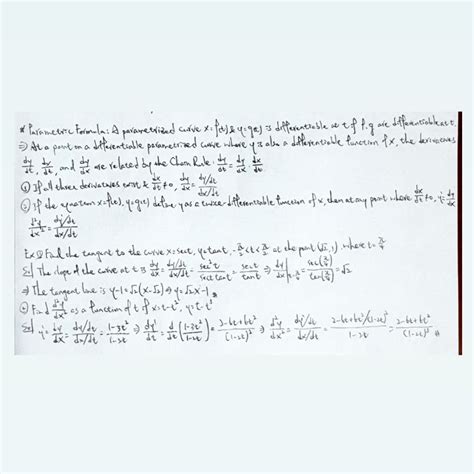 * Parametric Formula: A parametrized curve x=f(t) & y=g(t) is differentiable at t if f, g are differentiable at t.
⇒ At a point on a differentiable parametrized curve where y is also a differentiable function of x, the derivatives
dy/dt, dx/dt, and dy/dx are related by the Chain Rule: dy/dt = dy/dx · dx/dt
① If all three derivatives exist & dx/dt ≠ 0, dy/dx = (dy/dt)/(dx/dt)
② If the equation x=f(t), y=g(t) define y as a twice-differentiable function of x, then at any point where dx/dt ≠ 0, y' = dy/dx
d²y/dx² = (dy'/dt)/(dx/dt)
Ex ① Find the tangent to the curve x=sect, y=tant, -π/2<t<π/2 at the point (√2, 1), where t=π/4
Sol The slope of the curve at t is dy/dx = (dy/dt)/(dx/dt) = sec²t/(sect tant) = sect/tant ⇒ dy/dx|t=π/4 = sec(π/4)/tan(π/4) = √2
⇒ The tangent line is y-1=√2(x-√2) ⇒ y=√2x-1
② Find d²y/dx² as a function of t if x=t-t², y=t-t³
Sol y' = dy/dx = (dy/dt)/(dx/dt) = (1-3t²)/(1-2t) ⇒ dy'/dt = d/dt((1-3t²)/(1-2t)) = (2-6t+6t²)/(1-2t)² ⇒ d²y/dx² = (dy'/dt)/(dx/dt) = ((2-6t+6t²)/(1-2t)²)/(1-2t) = (2-6t+6t²)/(1-2t)³